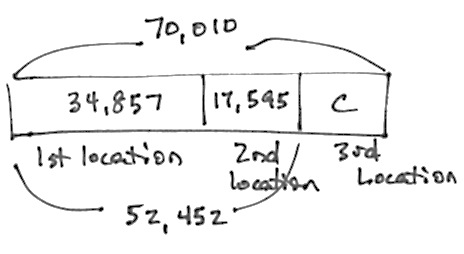 70,010
34,857 17,595 C
1st location 2nd location 3rd Location
52,452